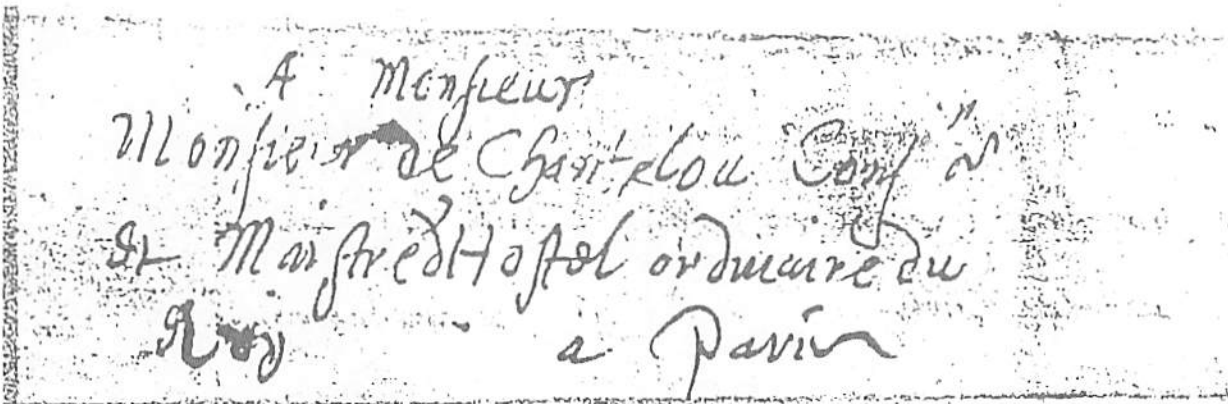 A Monsieur
Monsieur de Chantelou Cons er
et Maistre d'Hostel ordinaire du
Roy a Paris